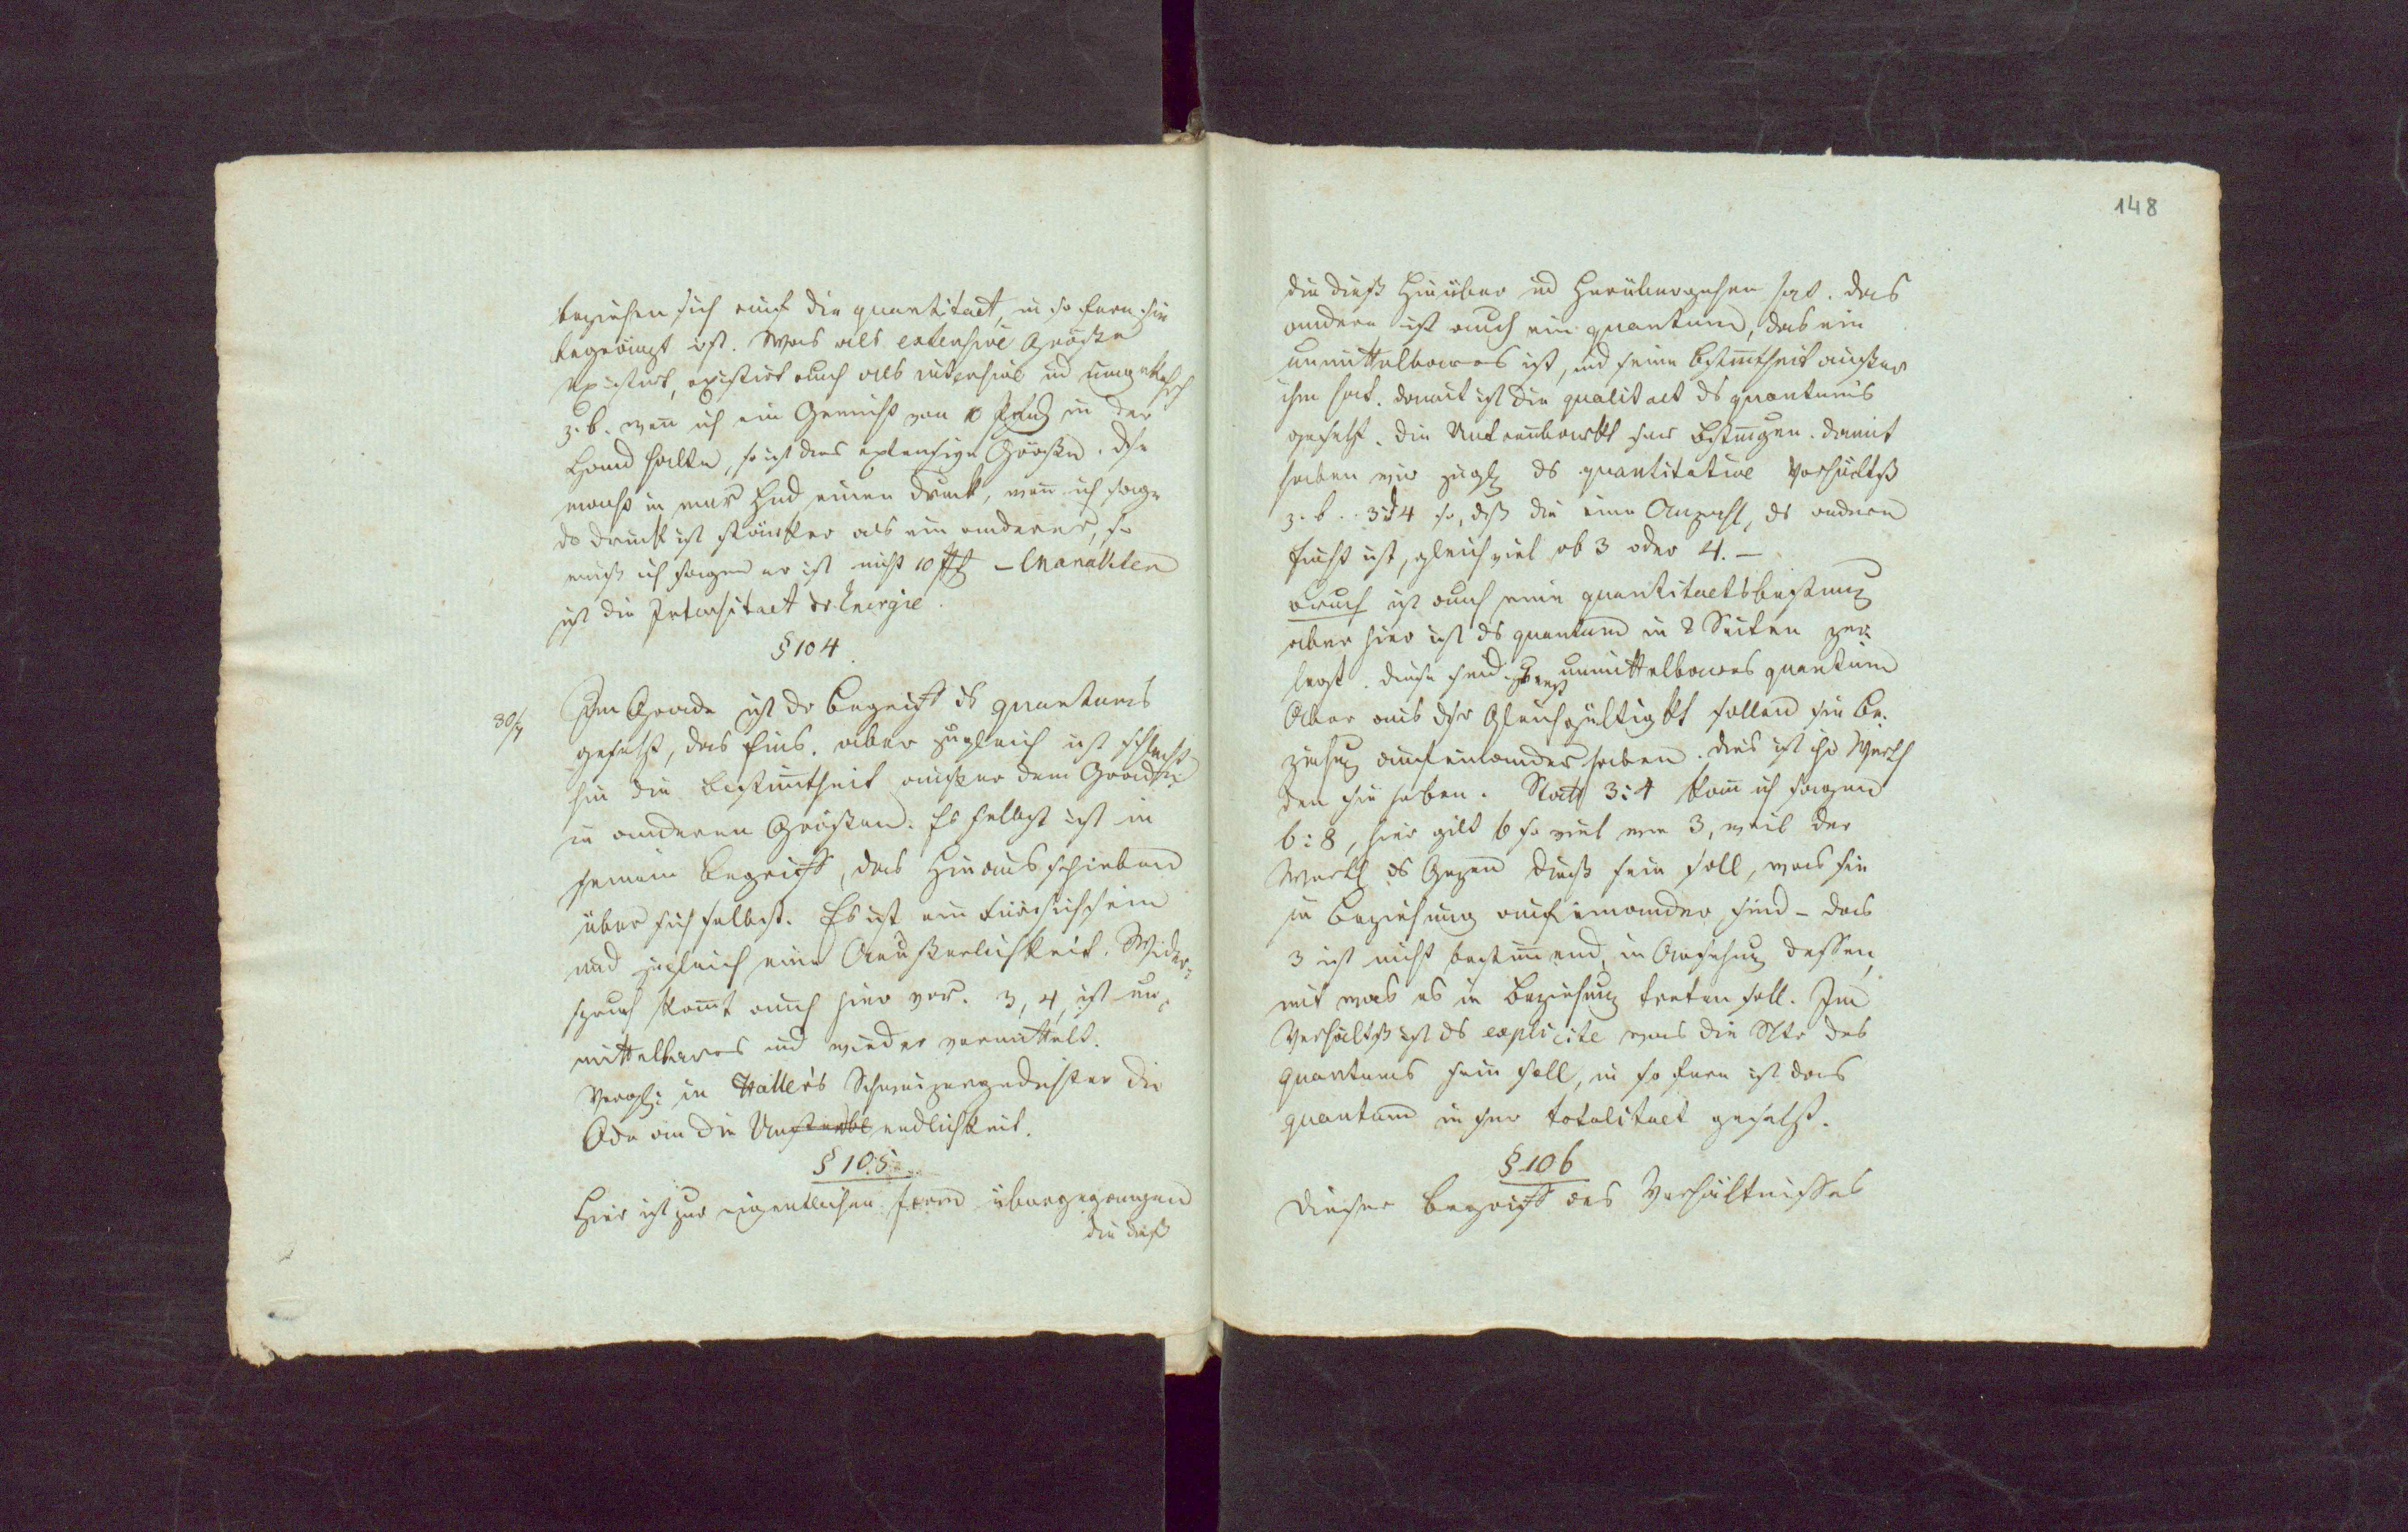 beziehen sich auf die quantitaet, in so fern sie
begränzt ist. Was als extensive Größe
existirt, existirt auch als intensive und umgekehrt
z. b. wenn ich ein Gewicht von 10 Pfund in der
Hand halte, so ist dies extensive Größe. Dse
macht in mnr Hnd einen Druck, wenn ich sage
dr Druck ist stärker als ein anderer, so
muß ich sagen er ist nicht 10 ℔ – Charakter
ist die Intensitaet dr Energie.
§ 104.
30/7
Im Grade ist dr Begriff ds quantums
gesetzt, das Eins. aber zugleich ist schlecht
hin die Bestimmtheit außer dem Grade
in anderen Größen. Es selbst ist in
seinem Begriff, das Hinausschieben
über sich selbst. Es ist ein Fürsichsein
und zugleich eine Aeußerlichkeit. Wider-
spruch kommt auch hier vor. 3, 4, ist un-
mittelbares und wieder vermittelt.
Vergl: in Hallers Schweizergedichten die
Ode an die Unsterbl endlichkeit.
§ 105
Hier ist zur eigentlichen Form übergegangen
die dieß
148
die dieß Hinüber und Herübergehen hat. das
andere ist auch ein quantum, das ein
unmittelbares ist, und seine Bestimmtheit außer
ihm hat. damit ist die qualitaet ds quantums
gesetzt. die Untrennbarkt snr Bestimmgen. damit
haben wir zugl. ds quantitative Verhältniß
z. b. 3:4 so, daß die eine Anzahl, ds andern
Einht ist, gleichviel ob 3 oder 4. –
Bruch ist auch eine quantitaetsbestimmung
aber hier ist ds quantum in 2 Seiten zer-
legt. diese sind unmittelbares quantum
Aber aus dsr Gleichgültigkt sollen sie Be-
ziehung aufeinander haben. dies ist ihr Werth
den sie haben. Statt 3:4 kann ich sagen
6:8, hier gilt 6 so viel wie 3, weil der
Werth ds Ganzen dieß sein soll, was sie
in Beziehung auf einander sind – das
3 ist nicht bestimmend, in Ansehung dessen,
mit was es in Beziehung treten soll. Im
Verhältniß ist ds explicite was die Ntr des
quantums sein soll, in so fern ist das
quantum in snr totalitaet gesetzt.
§ 106
Dieser Begriff des Verhältnisses